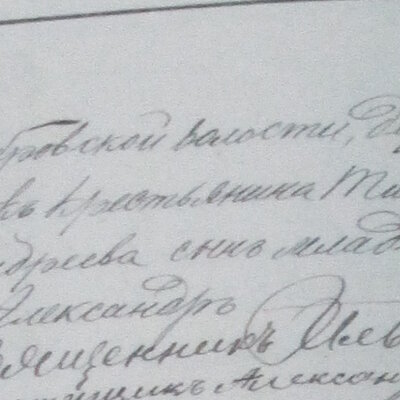 бровской волости, де
въ крестьянина Ти
ндреева сынъ млад
Александръ
вященникъ
Александ